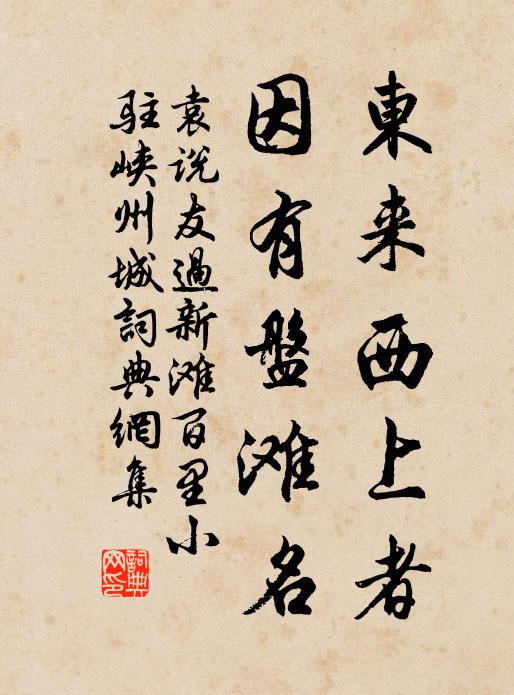 東来西上者
因有盤滩名
袁说友過新滩百里小
駐峡州城詞典網集
詞典
网印